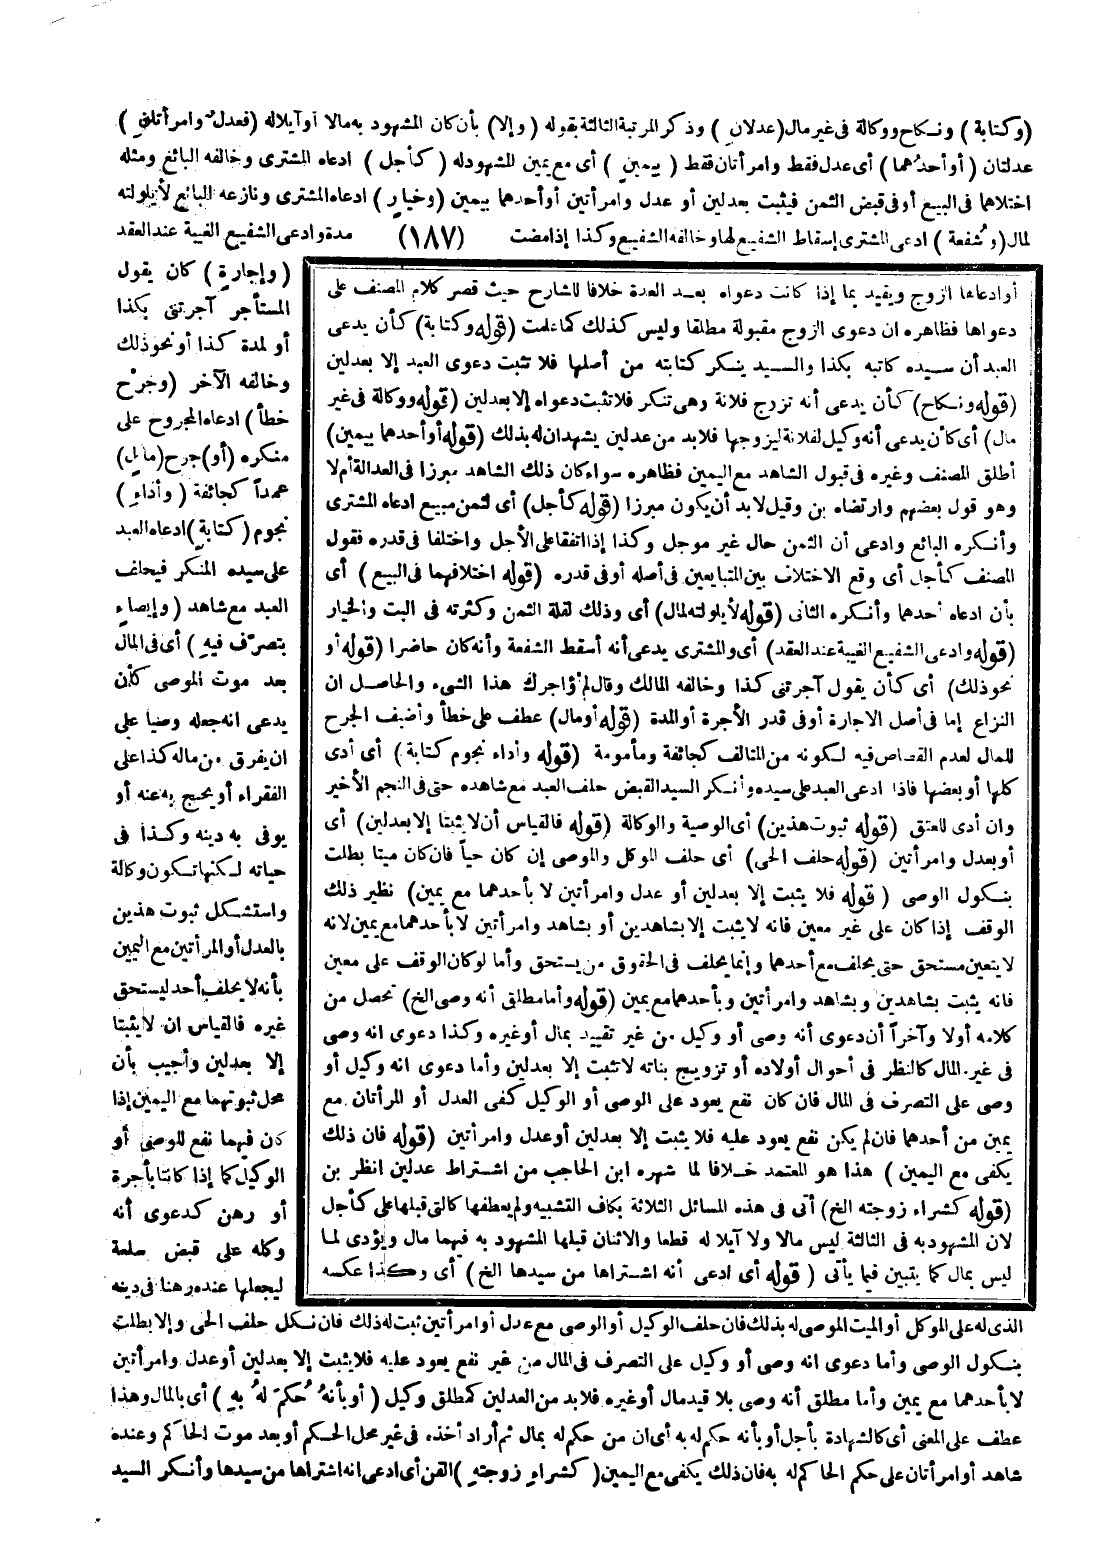 (وكتابة) ونكاح ووكالة فى غير مال (عدلان) وذكر المرتبة الثالثة بقوله (وإلا) بأن كان المشهود به مالا أو آيلا له (فعدل وامرأتان)
عدلتان (أو أحدهما) أى عدل فقط وامرأتان فقط (بيمين) أى مع يمين المشهود له (كأجل) ادعاه المشترى وخالفه البائع ومثله
اختلافهما فى البيع أو فى قبض الثمن فيثبت بعدلين أو عدل وامرأتين أو أحدهما بيمين (وخيار) ادعاه المشترى ونازعه البائع لأيلولته
لمال (وشفعة) ادعى المشترى إسقاط الشفيع لها وخالفه الشفيع وكذا إذا مضت (١٨٧) مدة وادعى الشفيع الغيبة عند العقد
(وإجارة) كان يقول
المستأجر آجرتنى بكذا
أو لمدة كذا أو نحو ذلك
وخالفه الآخر (وجرح
خطأ) ادعاه المجروح على
منكره (أو) جرح (مال)
عمداً كجائفة (وأداء)
نجوم (كتابة) ادعاه العبد
على سيده المنكر فيحلف
العبد مع شاهد (وإيصاء
بتصرف فيه) أى فى المال
بعد موت الموصى كأن
يدعى انه جعله وصيا على
ان يفرق من ماله كذا على
الفقراء أو يحج به عنه أو
يوفى به دينه وكذا فى
حياته لكنها تكون وكالة
واستشكل ثبوت هذين
بالعدل أو المرأتين مع اليمين
بأنه لا يحلف أحد ليستحق
غيره فالقياس ان لا يثبتا
إلا بعدلين وأجيب بأن
محل ثبوتهما مع اليمين إذا
كان فيهما نفع للوصى أو
الوكيل كما إذا كانتا بأجرة
أو رهن كدعوى أنه
وكله على قبض سلعة
ليجعلها عنده رهنا فى دينه
أو ادعاها الزوج ويقيد بما إذا كانت دعواه بعد العدة خلافا للشارح حيث قصر كلام المصنف على
دعواها فظاهره ان دعوى الزوج مقبولة مطلقا وليس كذلك كما علمت (قوله وكتابة) كأن يدعى
العبد أن سيده كاتبه بكذا والسيد ينكر كتابته من أصلها فلا تثبت دعوى العبد إلا بعدلين
(قوله ونكاح) كأن يدعى أنه تزوج فلانة وهى تنكر فلا تثبت دعواه إلا بعدلين (قوله ووكالة فى غير
مال) أى كأن يدعى أنه وكيل لفلانة ليزوجها فلابد من عدلين يشهدان له بذلك (قوله أو أحدهما بيمين)
أطلق المصنف وغيره فى قبول الشاهد مع اليمين فظاهره سواء كان ذلك الشاهد مبرزا فى العدالة أم لا
وهو قول بعضهم وارتضاه بن وقيل لابد أن يكون مبرزا (قوله كأجل) أى لثمن مبيع ادعاه المشترى
وأنكره البائع وادعى أن الثمن حال غير موجل وكذا إذا اتفقا على الأجل واختلفا فى قدره فقول
المصنف كأجل أى وقع الاختلاف بين المتبايعين فى أصله أو فى قدره (قوله اختلافهما فى البيع) أى
بأن ادعاه أحدهما وأنكره الثانى (قوله لأيلولته لمال) أى وذلك لقلة الثمن وكثرته فى البت والخيار
(قوله وادعى الشفيع الغيبة عند العقد) أى والمشترى يدعى أنه أسقط الشفعة وأنه كان حاضرا (قوله أو
نحو ذلك) أى كأن يقول آجرتنى كذا وخالفه المالك وقال لم أؤاجرك هذا الشىء والحاصل ان
النزاع إما فى أصل الاجارة أو فى قدر الأجرة أو المدة (قوله أو مال) عطف على خطأ وأضيف الجرح
للمال لعدم القصاص فيه لكونه من المتالف كجائفة ومأمومة (قوله وأداء نجوم كتابة) أى أدى
كلها أو بعضها فاذا ادعى العبد على سيده وأنكر السيد القبض حلف العبد مع شاهده حتى فى النجم الأخير
وان أدى للعتق (قوله ثبوت هذين) أى الوصية والوكالة (قوله فالقياس أن لا يثبتا إلا بعدلين) أى
أو بعدل وامرأتين (قوله حلف الحى) أى حلف الموكل والموصى إن كان حياً فان كان ميتا بطلت
بنكول الوصى (قوله فلا يثبت إلا بعدلين أو عدل وامرأتين لا بأحدهما مع يمين) نظير ذلك
الوقف إذا كان على غير معين فانه لا يثبت إلا بشاهدين أو بشاهد وامرأتين لا بأحدهما مع يمين لانه
لا يتعين مستحق حتى يحلف مع أحدهما وإنما يحلف فى الحقوق من يستحق وأما لو كان الوقف على معين
فانه يثبت بشاهدين وبشاهد وامرأتين وبأحدهما مع يمين (قوله وأما مطلق أنه وصى الخ) تحصل من
كلامه أولا وآخراً أن دعوى أنه وصى أو وكيل من غير تقييد بمال أو غيره وكذا دعوى انه وصى
فى غير المال كالنظر فى أحوال أولاده أو تزويج بناته لا تثبت إلا بعدلين وأما دعوى انه وكيل أو
وصى على التصرف فى المال فان كان نفع يعود على الوصى أو الوكيل كفى العدل أو المرأتان مع
يمين من أحدهما فان لم يكن نفع يعود عليه فلا يثبت إلا بعدلين أو عدل وامرأتين (قوله فان ذلك
يكفى مع اليمين) هذا هو المعتمد خلافا لما شهره ابن الحاجب من اشتراط عدلين انظر بن
(قوله كشراء زوجته الخ) أتى فى هذه المسائل الثلاثة بكاف التشبيه ولم يعطفها كالتى قبلها على كأجل
لان المشهود به فى الثالثة ليس مالا ولا آيلا له قطعا والاثنان قبلها المشهود به فيهما مال ويؤدى لما
ليس بمال كما يتبين فيما يأتى (قوله أى ادعى أنه اشتراها من سيدها الخ) أى وكذا عكسه
الذى له على الموكل أو الميت الموصى له بذلك فان حلف الوكيل أو الوصى مع عدل أو امرأتين ثبت له ذلك فان نكل حلف الحى وإلا بطلت
بنكول الوصى وأما دعوى انه وصى أو وكيل على التصرف فى المال من غير نفع يعود عليه فلا يثبت إلا بعدلين أو عدل وامرأتين
لا بأحدهما مع يمين وأما مطلق أنه وصى بلا قيد مال أو غيره فلابد من العدلين كمطلق وكيل (أو بأنه حكم له به) أى بالمال وهذا
عطف على المعنى أى كالشهادة بأجل أو بأنه حكم له به أى ان من حكم له بمال ثم أراد أخذه فى غير محل الحكم أو بعد موت الحاكم وعنده
شاهد أو امرأتان على حكم الحاكم له به فان ذلك يكفى مع اليمين (كشراء زوجته) القن أى ادعى انه اشتراها من سيدها وأنكر السيد